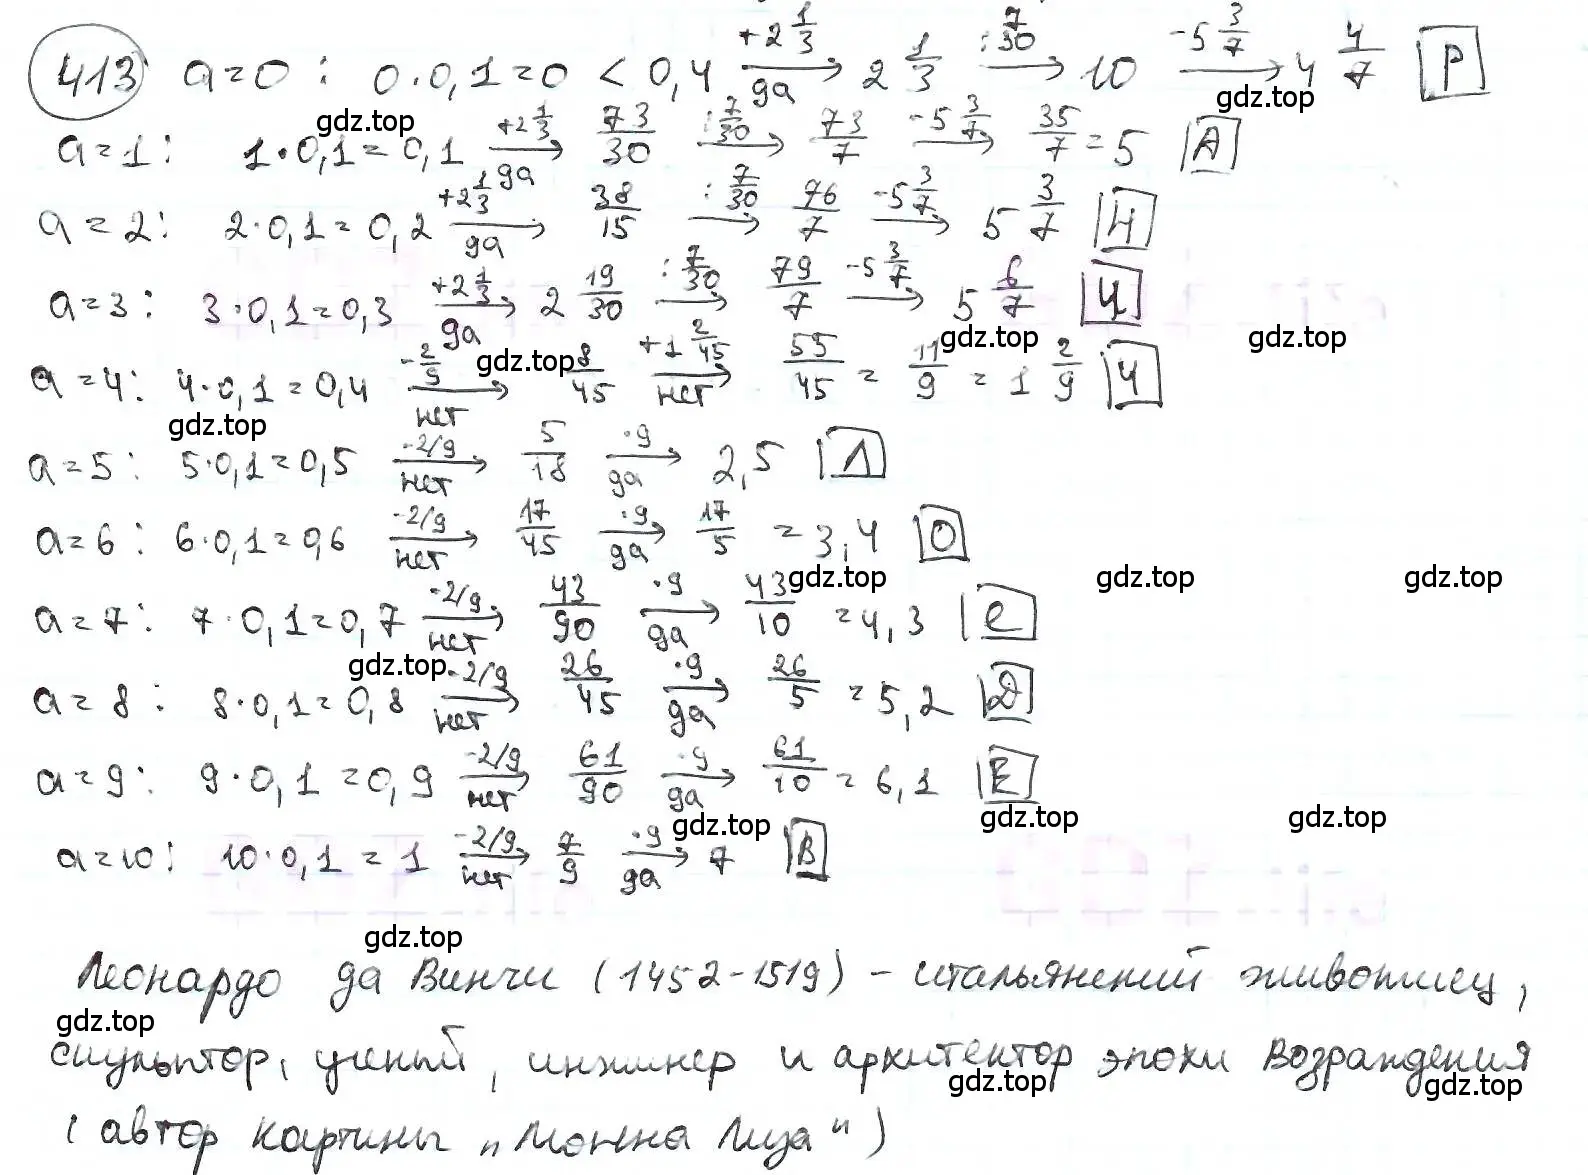 413 a=0 : 0·0,1=0 < 0,4 +2 1/3 → да 2 1/3 : 7/30 → 10 -5 3/7 → 4 4/7 Р
gdz.top gdz.top
a=1: 1·0,1=0,1 +2 1/3 → да 73/30 : 7/30 → 73/7 -5 3/7 → 35/7 = 5 А
a=2: 2·0,1=0,2 +2 1/3 → да 38/15 : 7/30 → 76/7 -5 3/7 → 5 3/7 Н
a=3: 3·0,1=0,3 +2 1/3 → да 2 19/30 : 7/30 → 79/7 -5 3/7 → 5 6/7 И
gdz.top gdz.top gdz.top
a=4: 4·0,1=0,4 -2/9 → нет 8/45 +1 2/45 → нет 55/45 = 11/9 = 1 2/9 Ч
gdz.top
a=5: 5·0,1=0,5 -2/9 → нет 5/18 ·9 → да 2,5 Л
a=6: 6·0,1=0,6 -2/9 → нет 17/45 ·9 → да 17/5 = 3,4 О
gdz.top gdz.top gdz.top
a=7: 7·0,1=0,7 -2/9 → нет 43/90 ·9 → да 43/10 = 4,3 е
gdz.top
a=8: 8·0,1=0,8 -2/9 → нет 26/45 ·9 → да 26/5 = 5,2 Д
a=9: 9·0,1=0,9 -2/9 → нет 61/90 ·9 → да 61/10 = 6,1 Е
gdz.top gdz.top gdz.top
a=10: 10·0,1=1 -2/9 → нет 7/9 ·9 → да 7 В
gdz.top
Леонардо да Винчи (1452-1519) - итальянский живописец,
gdz.top
скульптор, ученый, инжинер и архитектор эпохи Возраждения
gdz.top gdz.top
(автор картины „Монна Лиза")